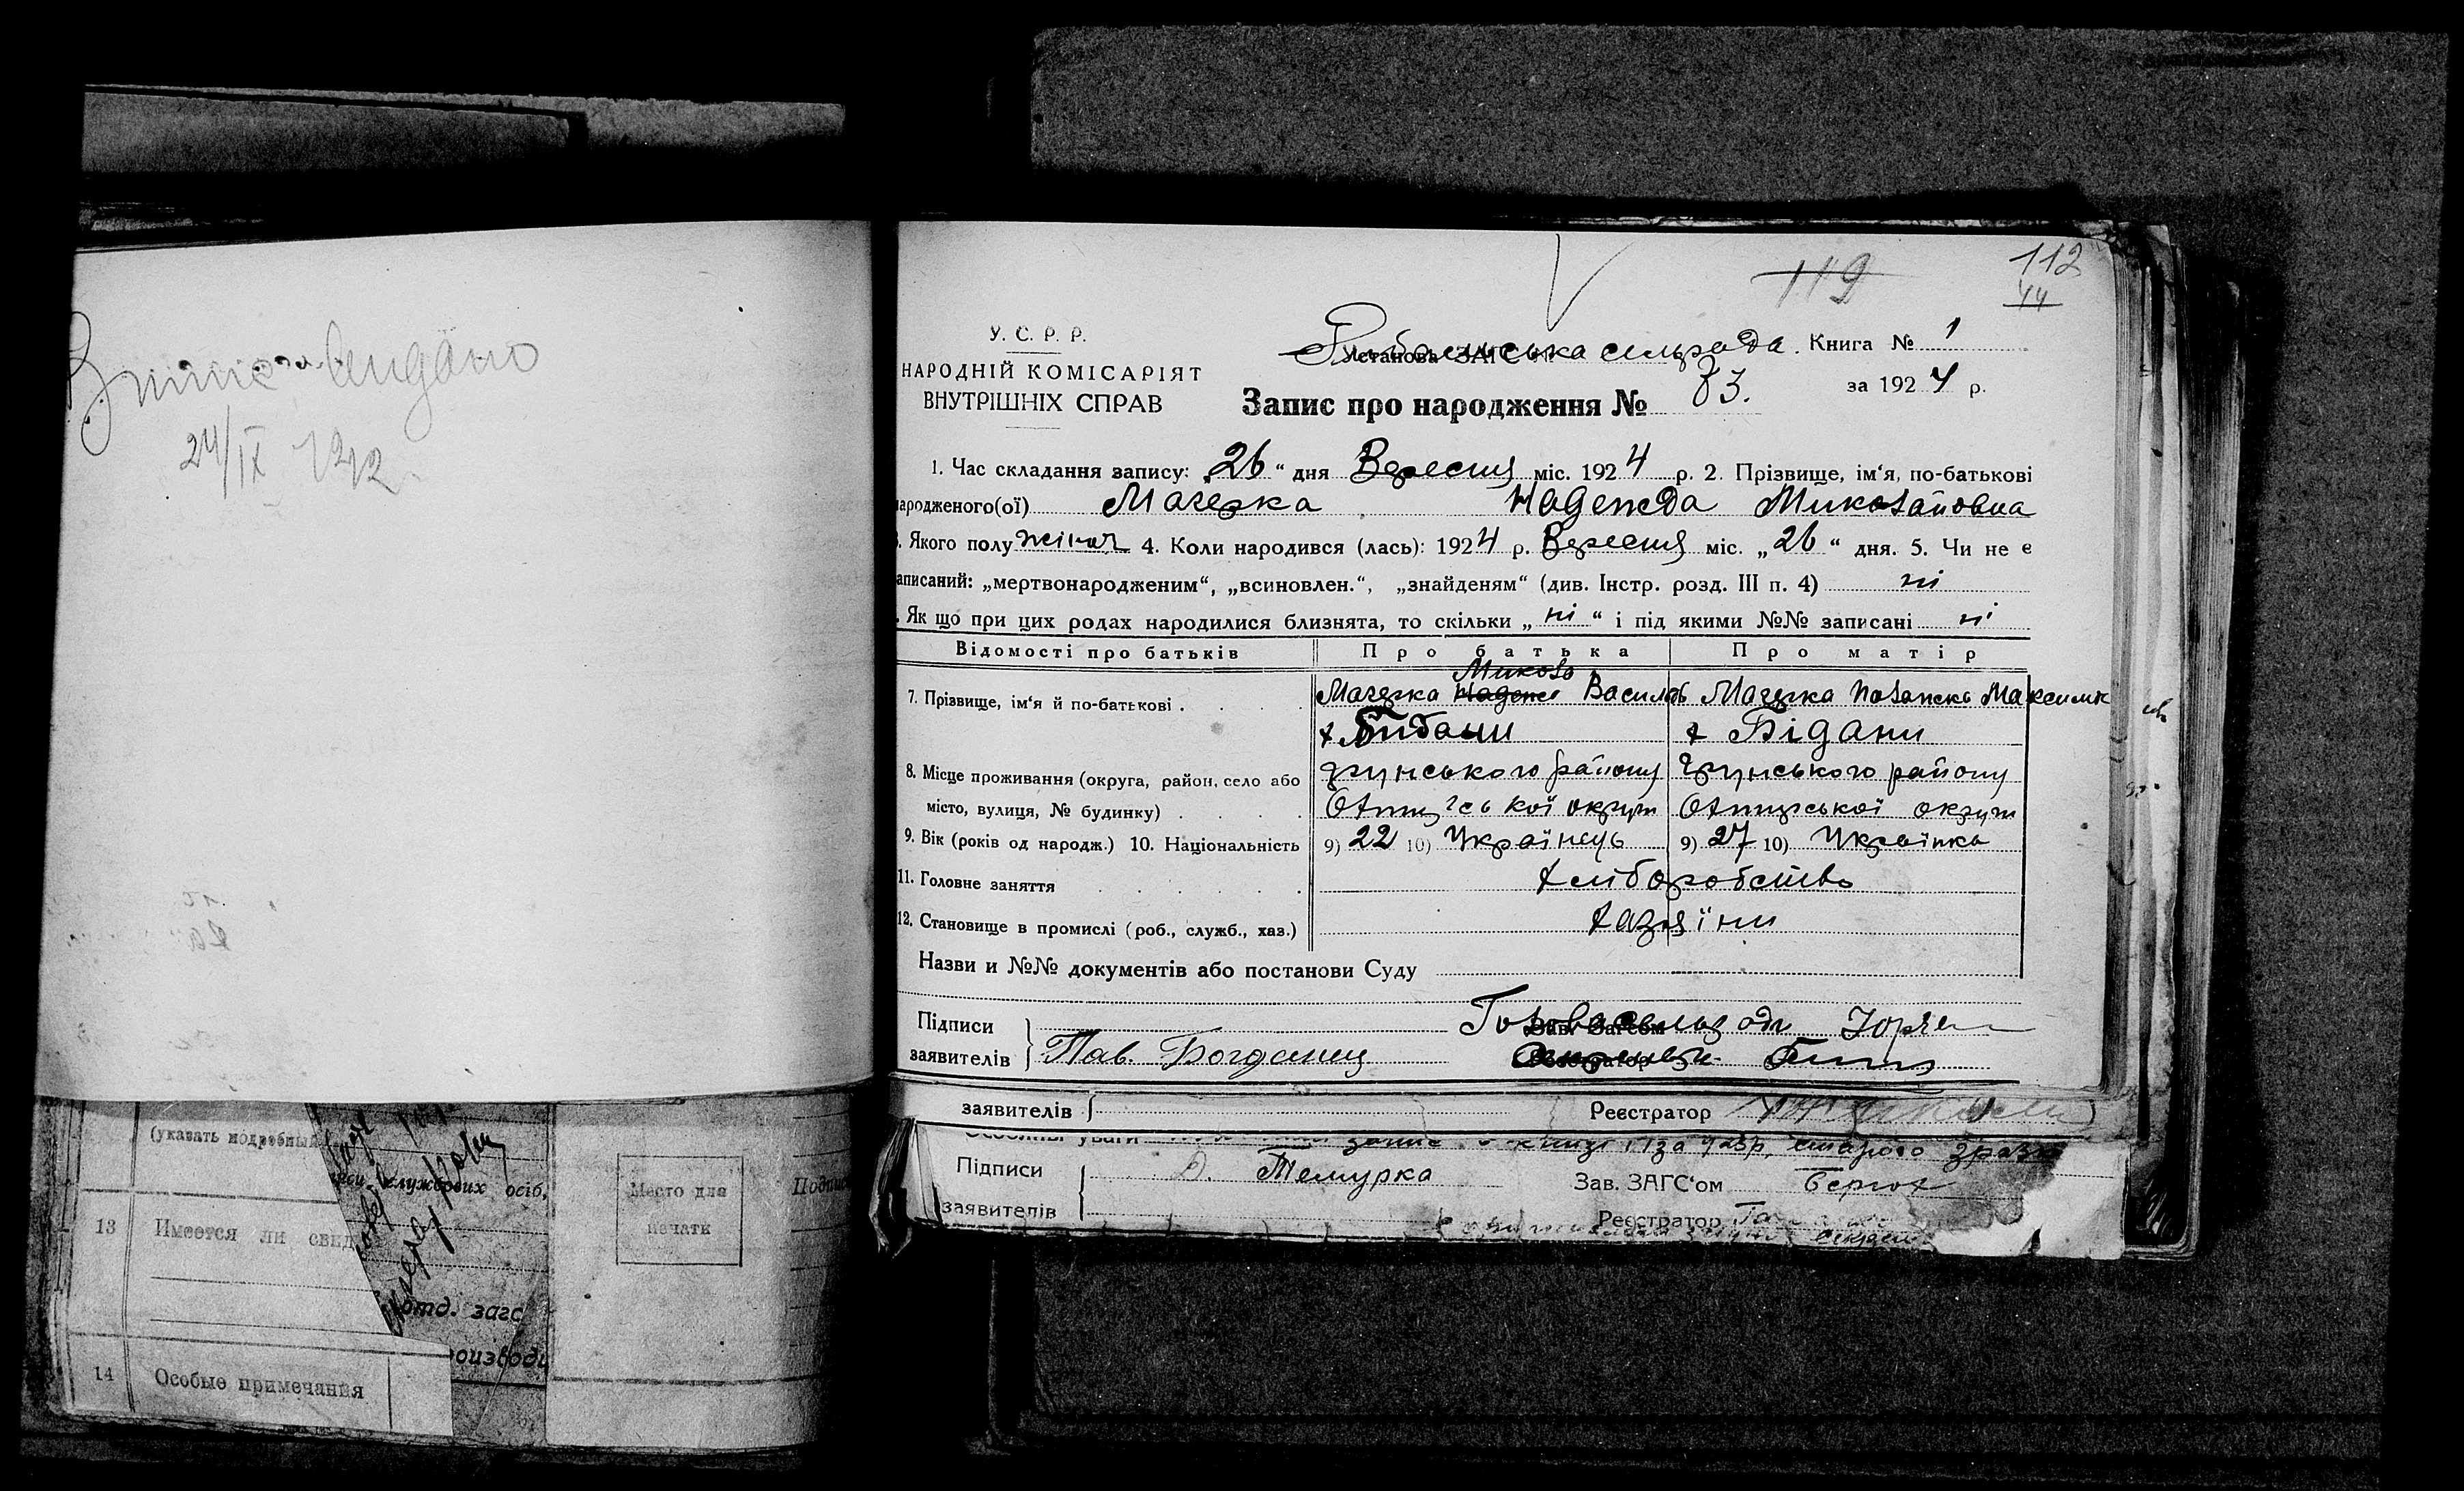 Виписъ видано
24/IX 1942
(указать подробный
службових осіб,
13 Имеется ли свид
отд. загс
14 Особые примечания
Место для
печати
112
119
44
У. С. Р. Р.
НАРОДНІЙ КОМІСАРІЯТ
ВНУТРІШНІХ СПРАВ
Установа ЗАГС
сельрада. Книга № 1
за 1924 р.
Запис про народження № 83.
1. Час складання запису: „26“ дня Вересня міс. 1924 р. 2. Прізвище, ім‘я, по-батькові
народженого(ої) Мачерка Надежда Миколаї́овна
3. Якого полу жіноч 4. Коли народився (лась): 1924 р. Вересня міс. „26“ дня. 5. Чи не є
записаний: „мертвонародженим“, „всиновлен.“, „знайденям“ (див. Інстр. розд. III п. 4) ні
Як що при цих родах народилися близнята, то скільки „ні“ і під якими №№ записані ні
Відомості про батьків Про батька Про матір
Микола
7. Прізвище, ім‘я й по-батькові . Мачерка Надежд Василь Мачерка Палажка Максимів
х Бідани х Бідани
8. Місце проживання (округа, район, село або Грунського району Грунського району
місто, вулиця, № будинку) Охтирської округи Охтирської округи
9. Вік (років од народж.) 10. Національність 9) 22 10) Українець 9) 27 10) Українка
11. Головне заняття хліборобство
12. Становище в промислі (роб., служб., хаз.) хазяїни
Назви и №№ документів або постанови Суду
Підписи Голова сельради Юрчен
заявителів Пав. Богданец
заявителів Реєстратор
запис в книзі 1 за 1923р. старого зразка
Підписи Темурка Зав. ЗАГС‘ом
заявителів Реєстратор